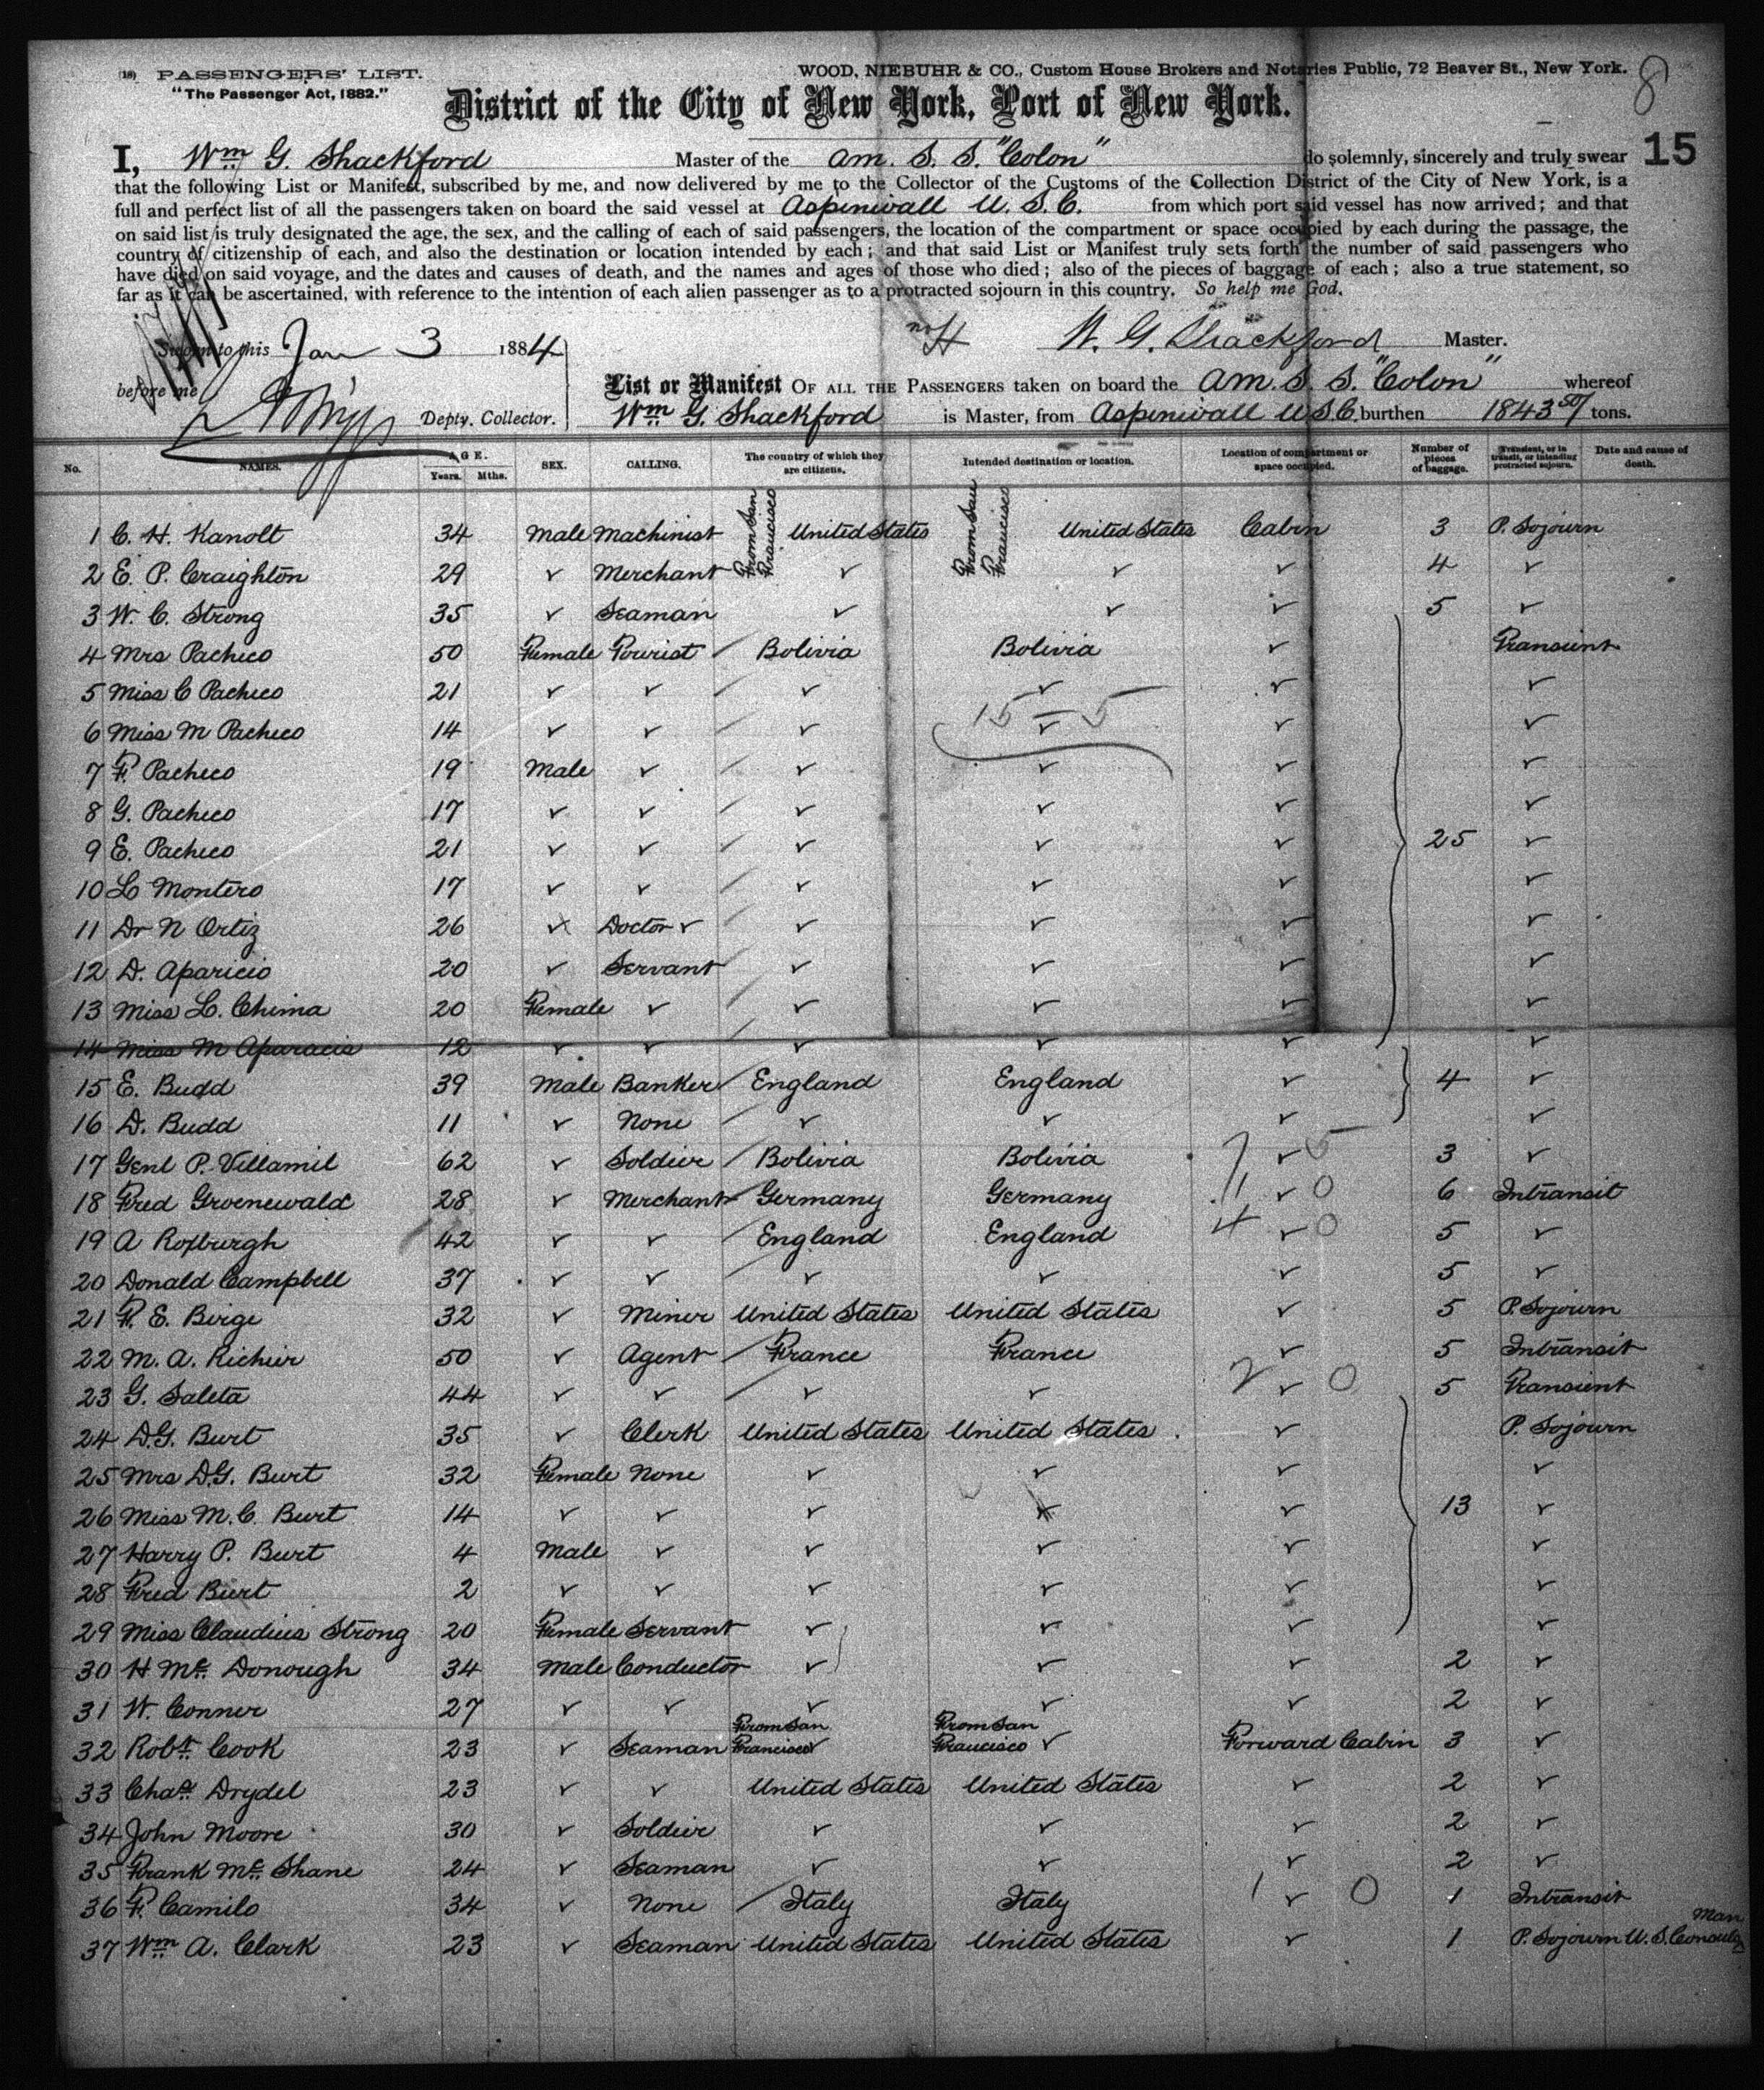 (18) PASSENGERS' LIST. WOOD, NIEBUHR & CO., Custom House Brokers and Notaries Public, 72 Beaver St., New York. 8
"The Passenger Act, 1882."
District of the City of New York, Port of New York.
I, Wm G. Shackford Master of the Am. S. S. "Colon" do solemnly, sincerely and truly swear 15
that the following List or Manifest, subscribed by me, and now delivered by me to the Collector of the Customs of the Collection District of the City of New York, is a
full and perfect list of all the passengers taken on board the said vessel at Aspinwall U. S. C. from which port said vessel has now arrived; and that
on said list is truly designated the age, the sex, and the calling of each of said passengers, the location of the compartment or space occupied by each during the passage, the
country of citizenship of each, and also the destination or location intended by each; and that said List or Manifest truly sets forth the number of said passengers who
have died on said voyage, and the dates and causes of death, and the names and ages of those who died; also of the pieces of baggage of each; also a true statement, so
far as it can be ascertained, with reference to the intention of each alien passenger as to a protracted sojourn in this country. So help me God.
Sworn to this Jan 3 1884 W. G. Shackford Master.
before me Depty. Collector.
List or Manifest OF ALL THE PASSENGERS taken on board the Am. S. S. "Colon" whereof
Wm G. Shackford is Master, from Aspinwall U.S.C. burthen 1843 50/ tons.
No. NAMES. AGE. Years. Mths. SEX. CALLING. The country of which they are citizens. Intended destination or location. Location of compartment or space occupied. Number of pieces of baggage. Transient, or in transit, or intending protracted sojourn. Date and cause of death.
1 C. H. Kanolt 34 Male Machinist From San Francisco United States From San Francisco United States Cabin 3 P. Sojourn
2 E. P. Craighton 29 ✓ Merchant ✓ ✓ ✓ 4 ✓
3 W. C. Strong 35 ✓ Seaman ✓ ✓ ✓ 5 ✓
4 Mrs Pacheco 50 Female Tourist Bolivia Bolivia ✓ Transient
5 Miss C Pacheco 21 ✓ ✓ ✓ ✓ ✓ ✓
15 – 5
6 Miss M Pacheco 14 ✓ ✓ ✓ ✓ ✓ ✓
7 F. Pacheco 19 Male ✓ ✓ ✓ ✓ ✓
8 G. Pacheco 17 ✓ ✓ ✓ ✓ ✓ ✓
9 E. Pacheco 21 ✓ ✓ ✓ ✓ ✓ 25 ✓
10 L Montero 17 ✓ ✓ ✓ ✓ ✓ ✓
11 Dr N Ortiz 26 ✓ Doctor ✓ ✓ ✓ ✓ ✓
12 D. Aparicio 20 ✓ Servant ✓ ✓ ✓ ✓
13 Miss L. Chima 20 Female ✓ ✓ ✓ ✓ ✓
14 Miss M Aparacis 12 ✓ ✓ ✓ ✓ ✓ ✓
15 E. Budd 39 Male Banker England England ✓ 4 ✓
16 D. Budd 11 ✓ None ✓ ✓ ✓ ✓
17 Genl P. Villamil 62 ✓ Soldier Bolivia Bolivia 7 ✓ 5 3 ✓
18 Fred Groenewald 28 ✓ Merchant Germany Germany 11 ✓ 0 6 Intransit
19 A Roxburgh 42 ✓ ✓ England England 4 ✓ 0 5 ✓
20 Donald Campbell 37 ✓ ✓ ✓ ✓ ✓ 5 ✓
21 F. E. Birge 32 ✓ Miner United States United States ✓ 5 P. Sojourn
22 M. A. Richier 50 ✓ Agent France France ✓ 5 Intransit
23 G. Saleta 44 ✓ ✓ ✓ ✓ 2 ✓ 0 5 Transient
24 D.G. Burt 35 ✓ Clerk United States United States ✓ P. Sojourn
25 Mrs D.G. Burt 32 Female None ✓ ✓ ✓ ✓
26 Miss M. C. Burt 14 ✓ ✓ ✓ ✓ ✓ 13 ✓
27 Harry P. Burt 4 Male ✓ ✓ ✓ ✓ ✓
28 Fred Burt 2 ✓ ✓ ✓ ✓ ✓ ✓
29 Miss Claudius Strong 20 Female Servant ✓ ✓ ✓ ✓
30 H Mc. Donough 34 Male Conductor ✓ ✓ ✓ 2 ✓
31 W. Conner 27 ✓ ✓ ✓ ✓ ✓ 2 ✓
32 Robt. Cook 23 ✓ Seaman From San Francisco ✓ From San Francisco ✓ Forward Cabin 3 ✓
33 Chas. Drydel 23 ✓ ✓ United States United States ✓ 2 ✓
34 John Moore 30 ✓ Soldier ✓ ✓ ✓ 2 ✓
35 Frank Mc. Shane 24 ✓ Seaman ✓ ✓ ✓ 2 ✓
36 F. Camilo 34 ✓ None Italy Italy 1 ✓ 0 1 Intransit
37 Wm A. Clark 23 ✓ Seaman United States United States ✓ 1 P. Sojourn U. S. Consuls Man